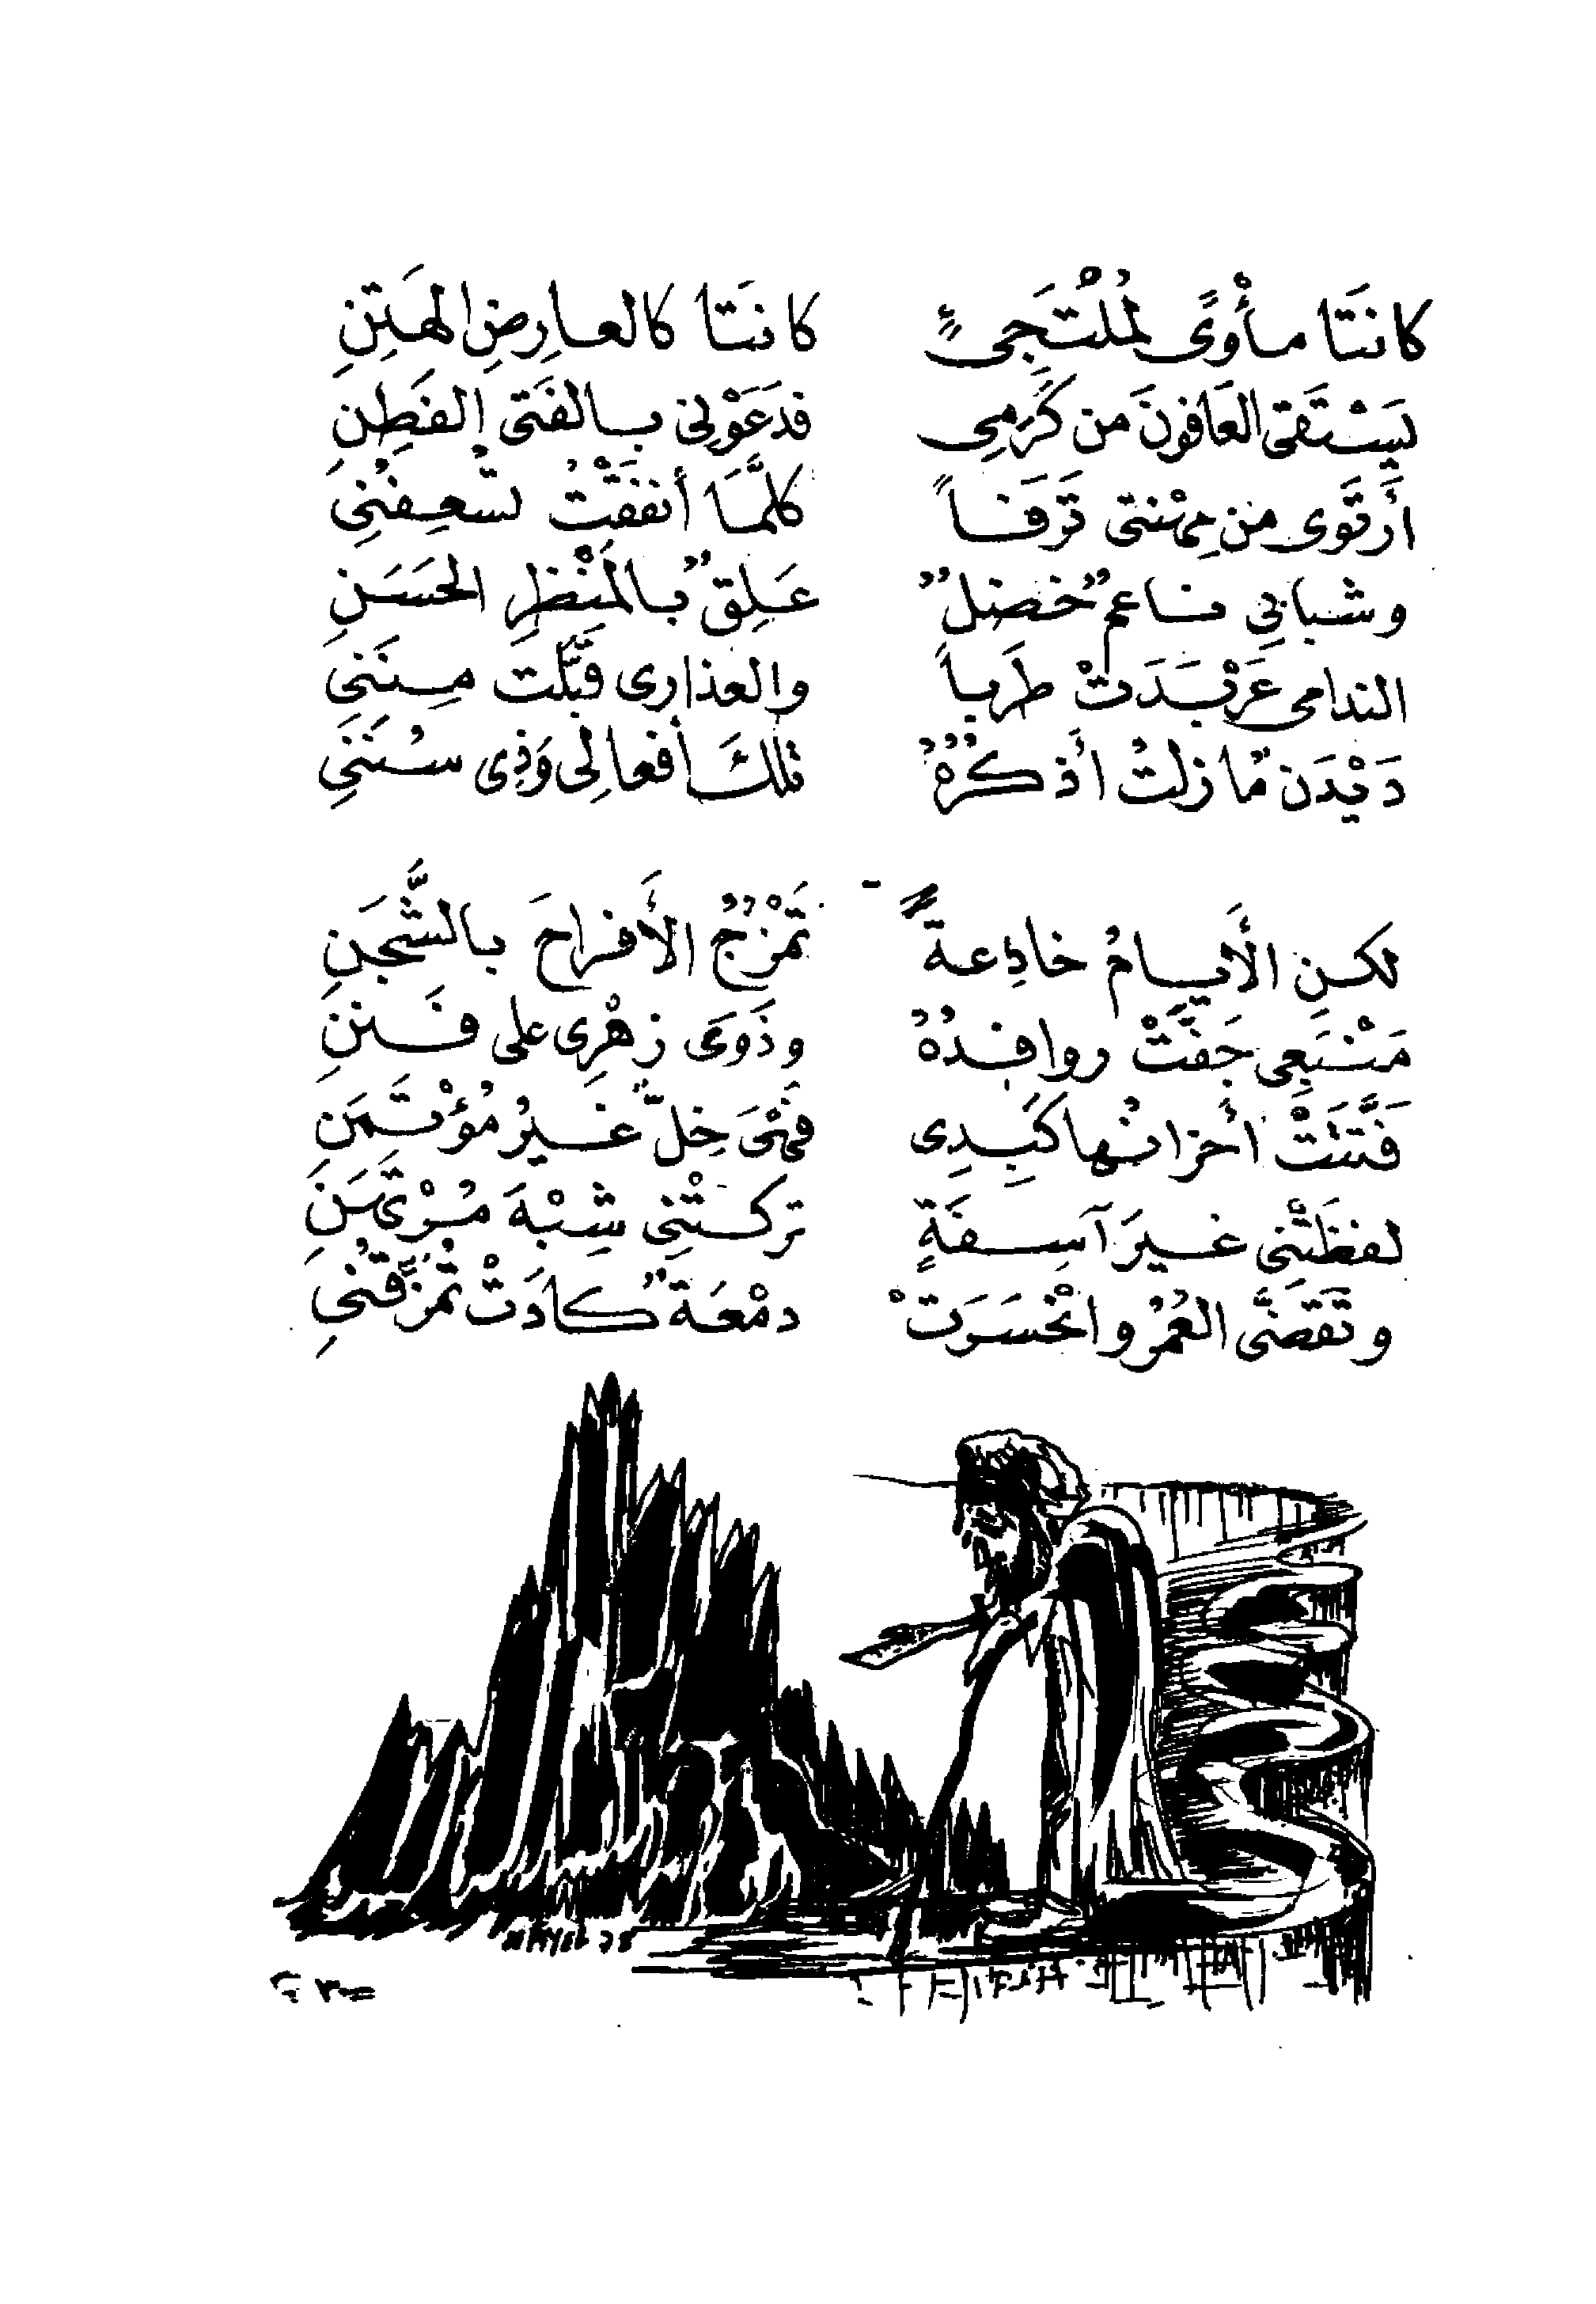 كانَتَا مأْوًى لمُلْتَجِئٍ كانتَا كالعارِضِ الهَتِنِ
يَسْتَقي العَافونَ من كَرَمِي فدَعَوْنِي بالفَتَى الفَطِنِ
أرتَوي من مِهْنتي تَرَفاً كلمَّا أنفقتُ تسْعِفُنِي
وشبابي ناعمٌ خضلٌ عَلِقٌ بالمَنْظرِ الحَسَنِ
الندامى عَرْبَدَتْ طَرَباً والعذارى قبَّلت مِنَنِي
دَيْدَن مَازلتُ أذكُرُهُ تلكَ أفعالِي وَذِي سُنَنِي
لكنِ الأَيامُ خادِعةٌ تَمْزُجُ الأَفراحَ بالشَّجَنِ
مَنْبَعِي جَفَّتْ روافِدُهُ وذَوَى زهْرِي على فَنَنِ
فَتَّتَتْ أحزانُها كَبِدِي فهْيَ خِلٌّ غيرُ مُؤْتَمَنِ
لفظَتْنِي غيرَ آسِفَةٍ تركتْنِي شِبْهَ مُرْتَهَنِ
وتَقَضَّى العُمْرُ وانْحَسَرَتْ دمْعَةٌ كادَتْ تُمزِّقُنِي